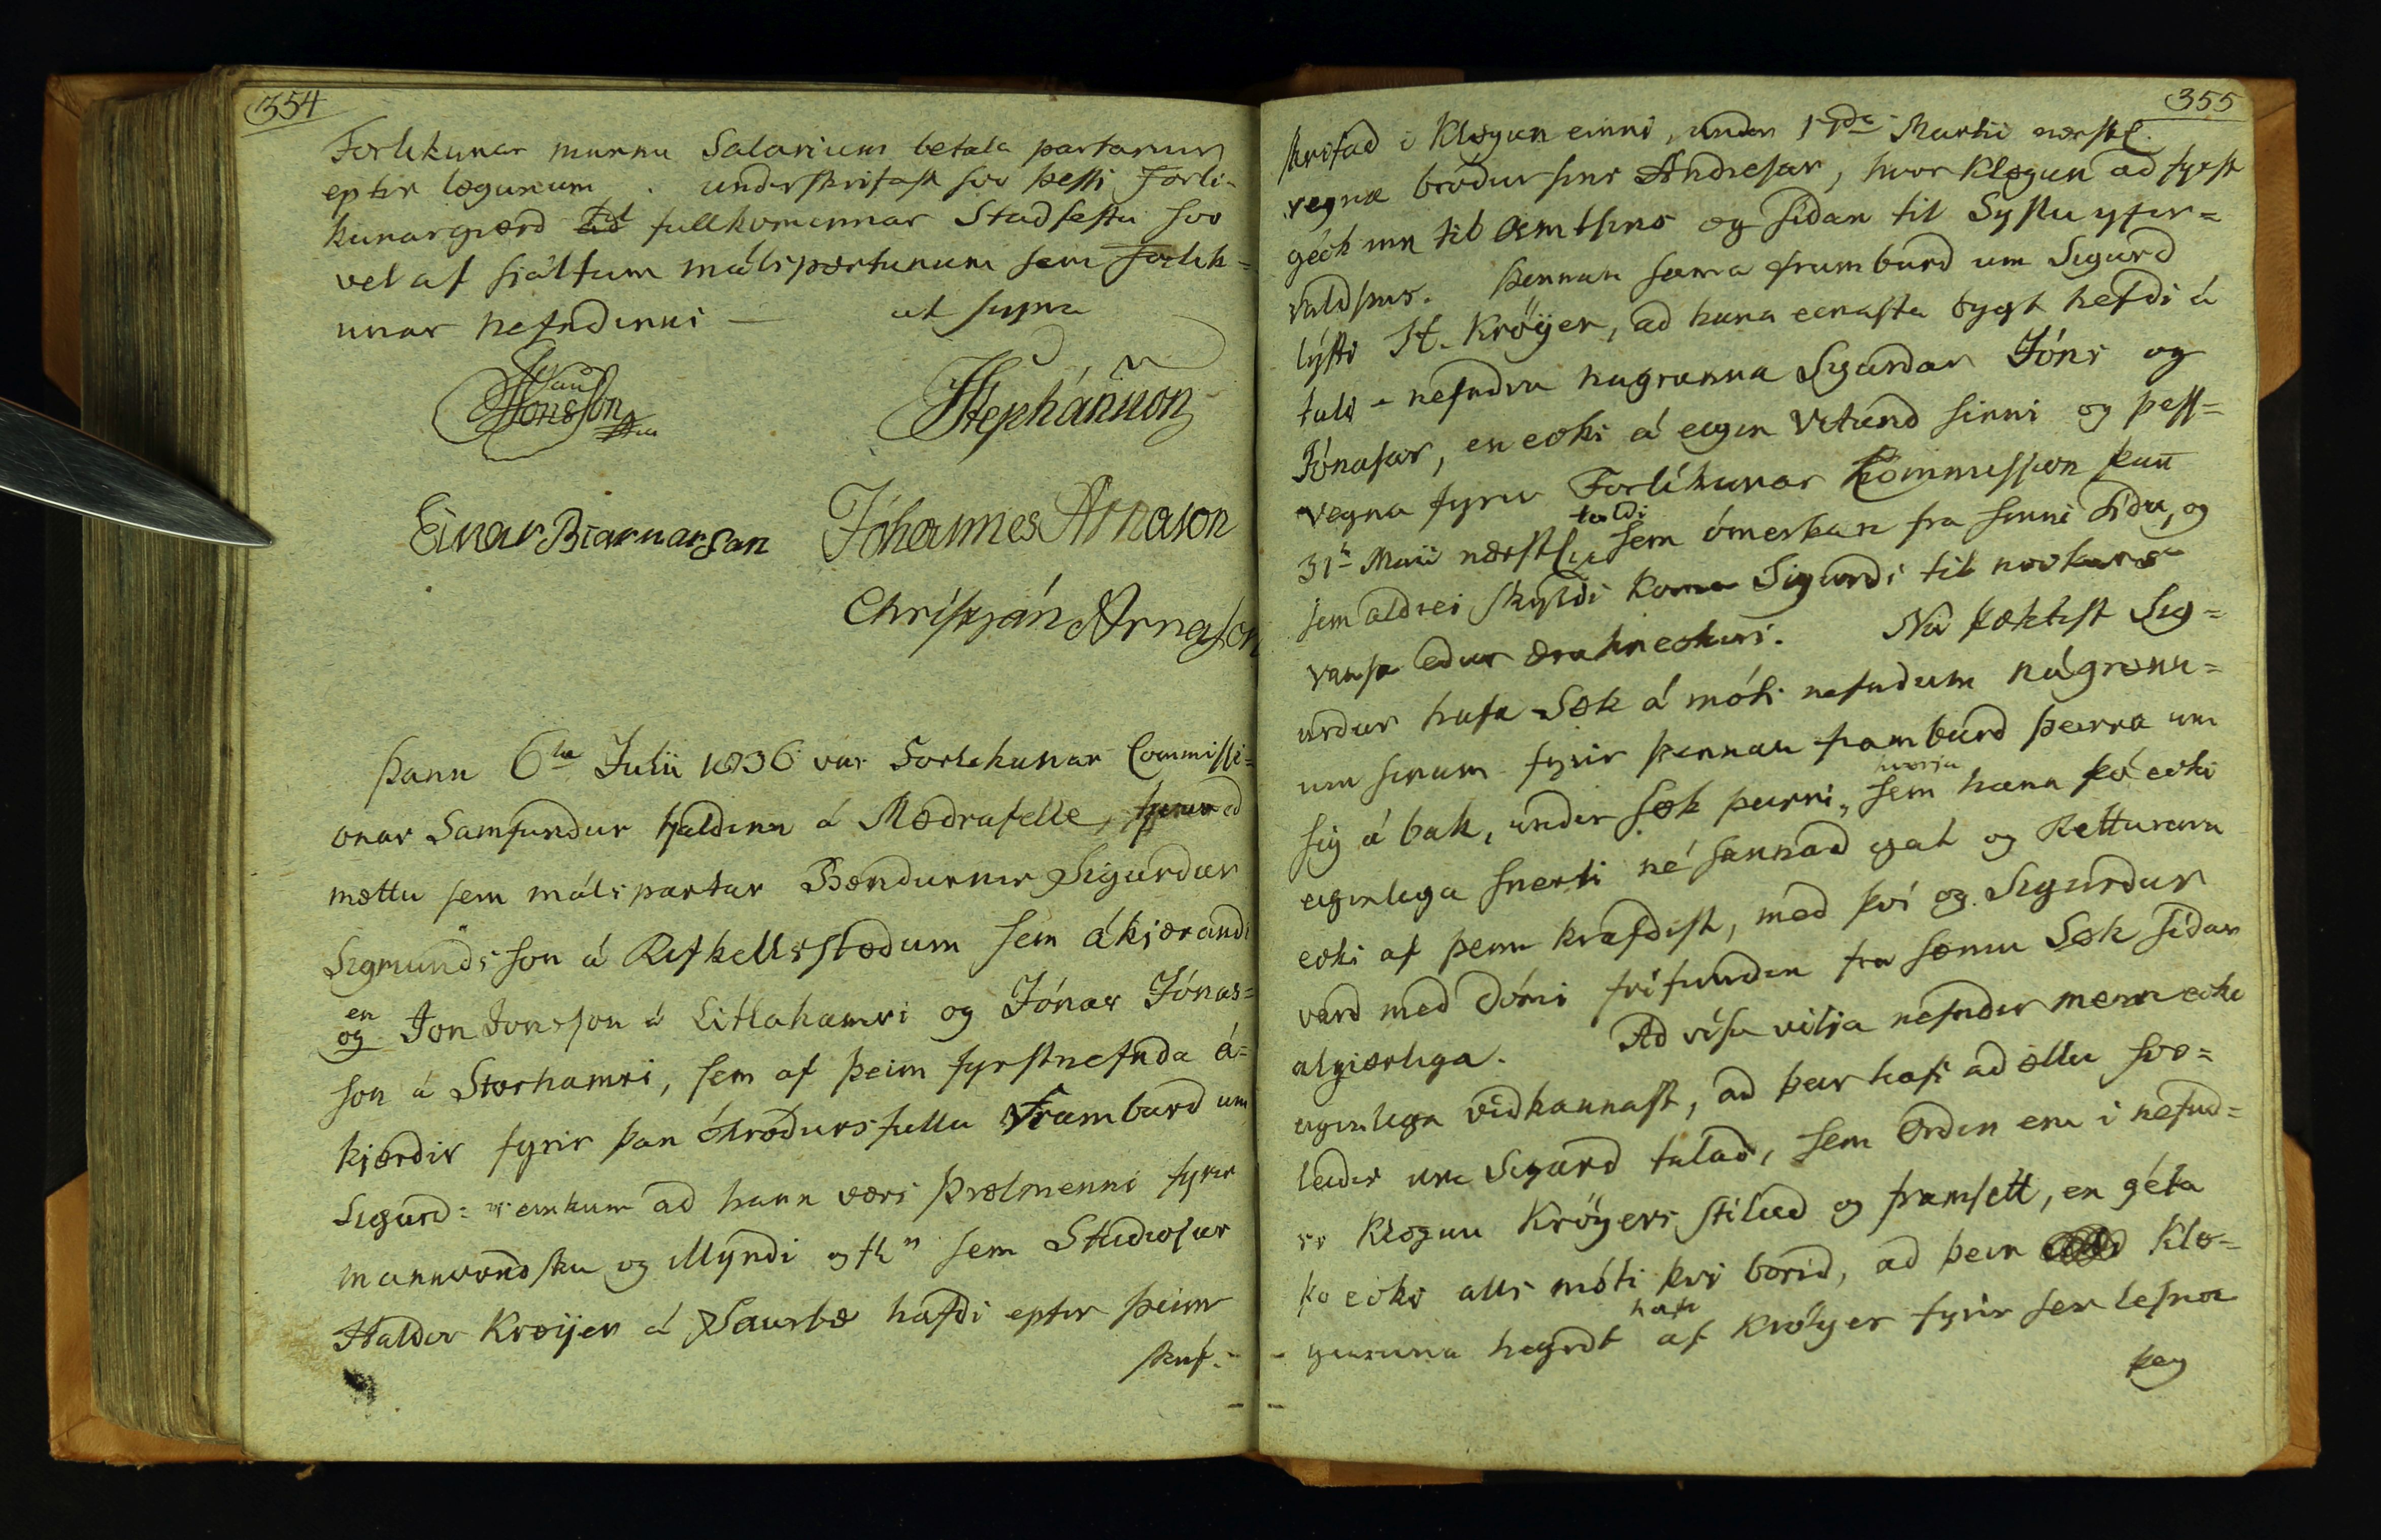 354
Forlikunar munnu Salarium betala partarnir
eptir lögunum . underskrifast svo þessi Forli-
kunargiærd til fullkomennar Stadfestu svo
vel af sjálfum málspörtunum sem Forlik=
unar nefndinni — ut supra
Jónsson
Stephánsson
Einar Biarnarson Jóhannes Arnason
Christján Arnason
Þann 6ta Julii 1836 var Forlikunar Commissi=
onar Samfundur haldinn á Mödrufelle,
mættu sem málspartar Bændurner Sigurdur
Sigmundsson á Rifkellsstödum sem ákjærandi
en
og Jon Jonsson á Litlahamri og Jónas Jónas=
son á Storhamri, sem af þeim fyrstnefnda á=
kjærdir fyrir þan óhrodursfulla Framburd um
Sigurd= ad hann væri Þrælmenni fyrir
mannvondsku og Illyndi sem Studiosus
Haldór Kröijer á Saurbæ hafdi epter þeim
skrif.-
355
skrifad i Klögun einni, under 17da Martii næstl.
vegna bródur sins Andresar, hvor Klögun ad fyrst
géck inn til Amtsins og sídan til Syslu yfir=
valdsins. Þennan sama framburd um Sigurd
lýsti St. Kröÿer, ad hann einasta bygt hefdi á
tali - nefndra nágranna Sigurdar Jóns og
Jónasar, en ecki á eigin Vitund sinni og þess=
vegna fyrir Forlíkunar Kommission þan
taldi
31ta Maii næstl. sem ómerkan fra sinni Sidu, og
sem aldrei skyldi koma Sigurdi til nockurs
vansa edur æruhneckiri. Nú þóktist Sig=
urdur hafa Sök á móti nefndum nágrönn=
um sinum fyrir þennan framburd þeirra um
hvorja
sig á bak, under sök þeirri, sem hann þó ecki
eiginlega snerti né sannad gat og Retturinn
ecki af þeim krafdist, med því og Sigurdur
vard med dómi frífundin fra sömu Sök sídar
algiörlega. Ad vísu vilja nefndir menn ecki
eiginlega vidkannast, ad þeir hafi ad öllu svo=
leidis um Sigurd talad, sem Ordin eru i nefnd=
ri Klögun Kröÿers stilud og framsett, en géta
þo ecki alls móti því borid, ad þeir Klö=
hafi
gunina heyrdt af Kröÿer fyrir ser lesna
þeg